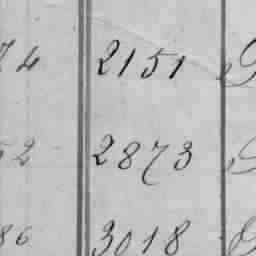 74 2151
52 2873
86 3018